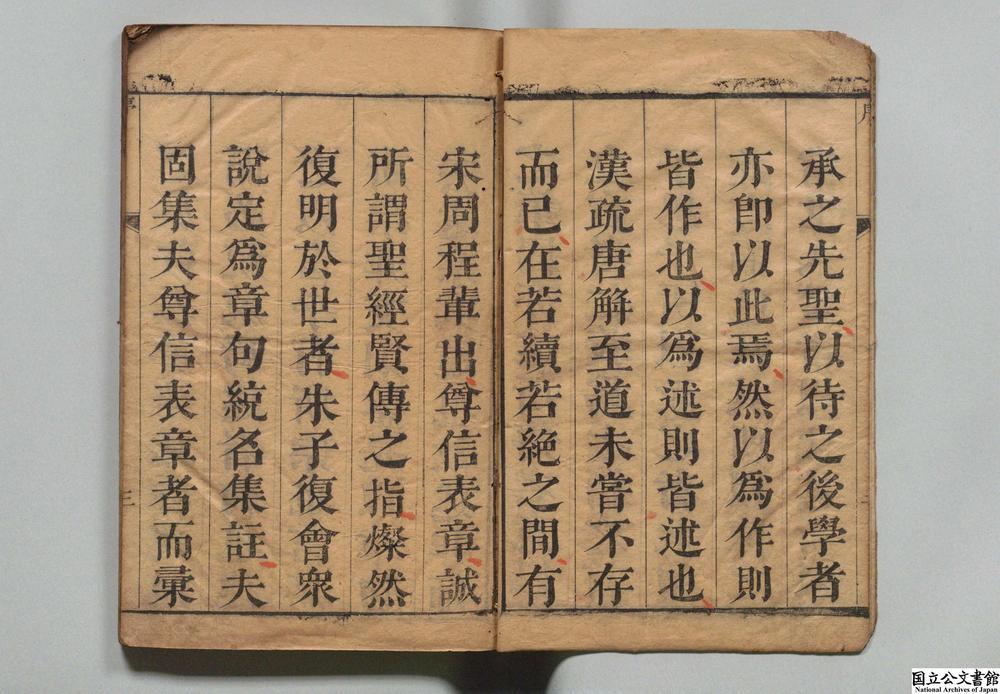 承之先聖以待之後學者
亦卽以此焉然以爲作則
皆作也以爲述則皆述也
漢疏唐解至道未嘗不存
而已在若續若絕之間有
宋周程輩出尊信表章誠
所謂聖經賢傳之指燦然
復明於世者朱子復會衆
說定爲章句統名集註夫
固集夫尊信表章者而彙
序
三
国立公文書館
National Archives of Japan